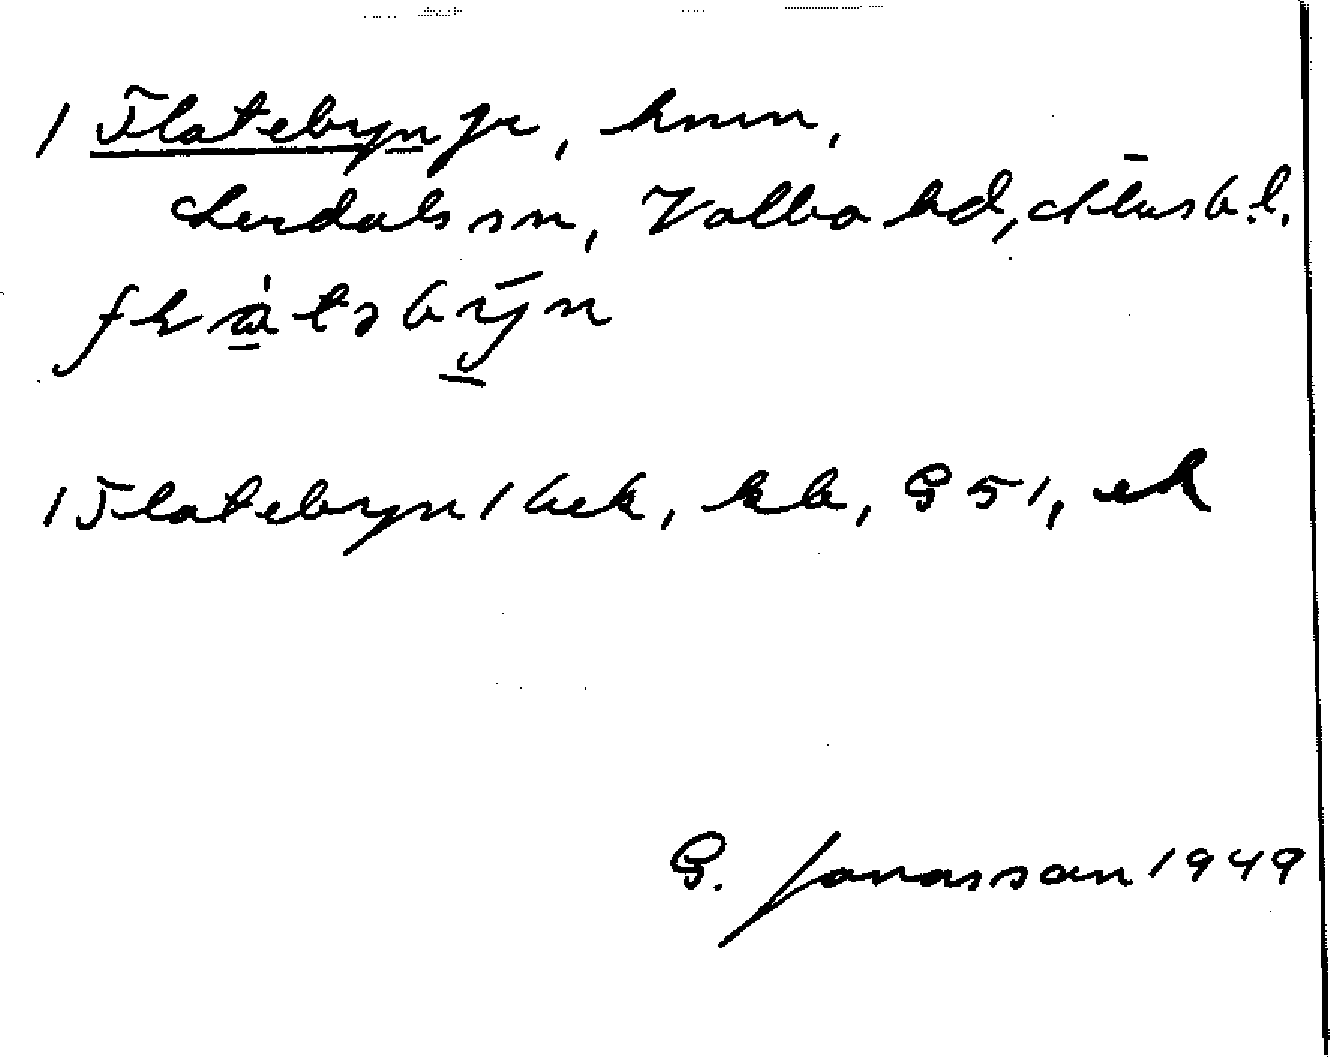 1 Flatebyn gr, hmn,
Lerdals sn, Valbo hd, Älvsb. l.
flàtəbȳn
1 Flatebyn 1 bek, kb, G 51, ek
G. Jonasson 1949